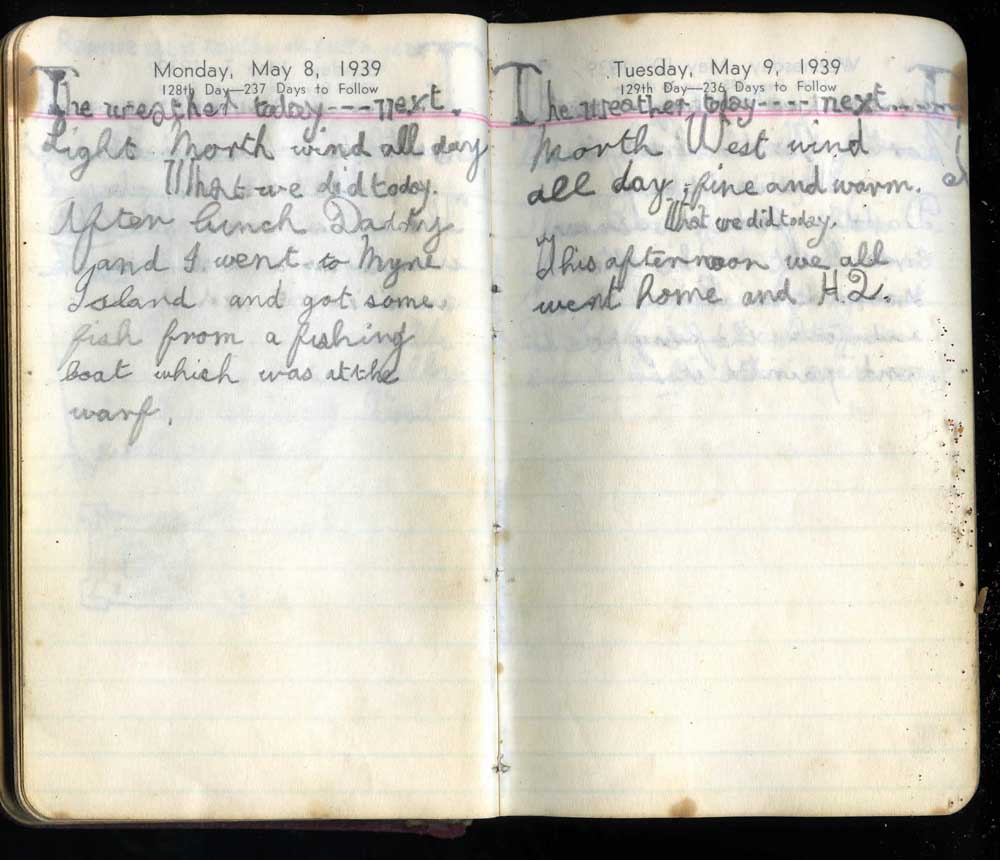 Monday, May 8, 1939
128th Day—237 Days to Follow
The weather today---next.
Light North wind all day
What we did today.
After lunch Daddy
and I went to Myne
Island and got some
fish from a fishing
boat which was at the
warf.
Tuesday, May 9, 1939
129th Day—236 Days to Follow
The weather today---- next......
North West wind
all day, fine and warm.
What we did today.
This afternoon we all
went home and H.Q.